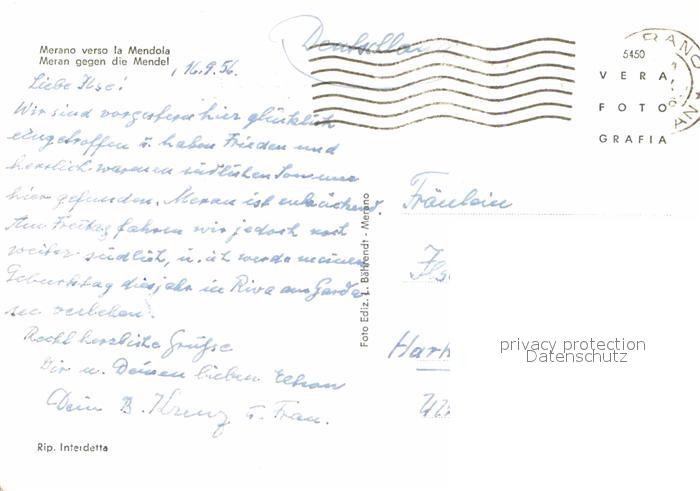 Merano verso la Mendola
Meran gegen die Mendel
, 16.9.56.
Liebe Ilse!
Wir sind vorgestern hier glücklich
eingetroffen u. haben Frieden und
herrlich warmen südlichen Sonne
hier gefunden. Meran ist entzückend.
Am Freitag fahren wir jedoch noch
weiter südlich, u. ich werde meinen
Geburtstag dies Jahr in Riva am Garda-
see verleben.
Recht herzliche Grüsse
Dir u. Deinen lieben Eltern
Dein B. u. Frau.
Rip. Interdetta
Foto Ediz. L. Bährendt - Merano
Deutschland
RANO
5450
VERA
FOTO
GRAFIA
Fräulein
Ils
Har
privacy protection
Datenschutz